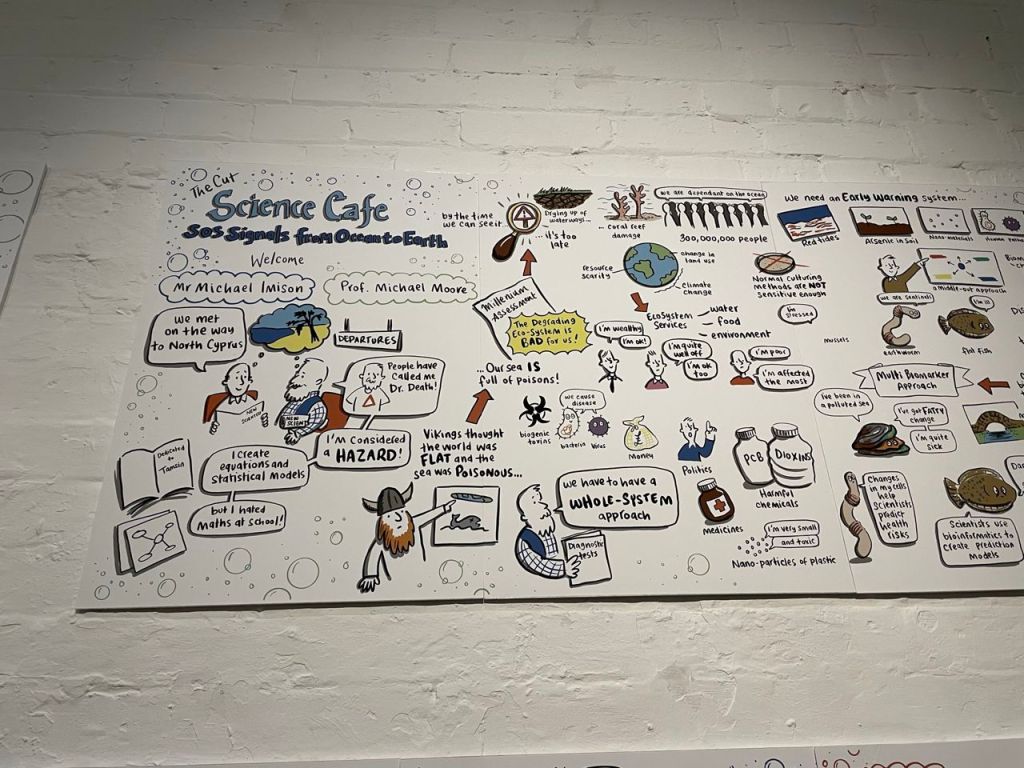 The Cut
Science Cafe
SOS Signals from Ocean to Earth
Welcome
Mr Michael Imison
Prof. Michael Moore
We met
on the way
to North Cyprus
DEPARTURES
People have
called me
Dr. Death!
NEW
SCIENTIST
NEW
SCIENT
I'm considered
a HAZARD!
Dedicated
to
Tamsin
I create
equations and
statistical models
but I hated
maths at school!
Vikings thought
the world was
FLAT and the
sea was POISONOUS...
...Our sea IS
full of poisons!
Millenium
Assessment
The Degrading
Eco-System is
BAD for us!
by the time
we can see it
...it's too
late
Drying up of
waterways...
...coral reef
damage
we are dependant on the ocean
300,000,000 people
resource
scarity
change in
land use
climate
change
EcoSystem
Services
water
food
environment
I'm wealthy
I'm ok!
I'm quite
well off
I'm ok
too
I'm poor
I'm affected
the most
biogenic
toxins
we cause
disease
bacteria
virus
Money
Politics
PCB
Dioxins
Harmful
chemicals
medicines
I'm very small
and toxic
Nano-particles of plastic
we have to have a
WHOLE-SYSTEM
approach
Diagnostic
tests
We need an Early Warning system...
Red tides
Arsenic in Soil
Nano-materials
Normal culturing
methods are NOT
sensitive enough
I'm
stressed
mussels
a middle-out approach
we are sentinels
earthworm
I'm ill
flat fish
Multi Biomarker
Approach
I've been in
a polluted sea
I've got FATTY
change
I'm quite
sick
Changes
in my cells
help
scientists
predict
health
risks
Scientists use
bioinformatics to
create prediction
models